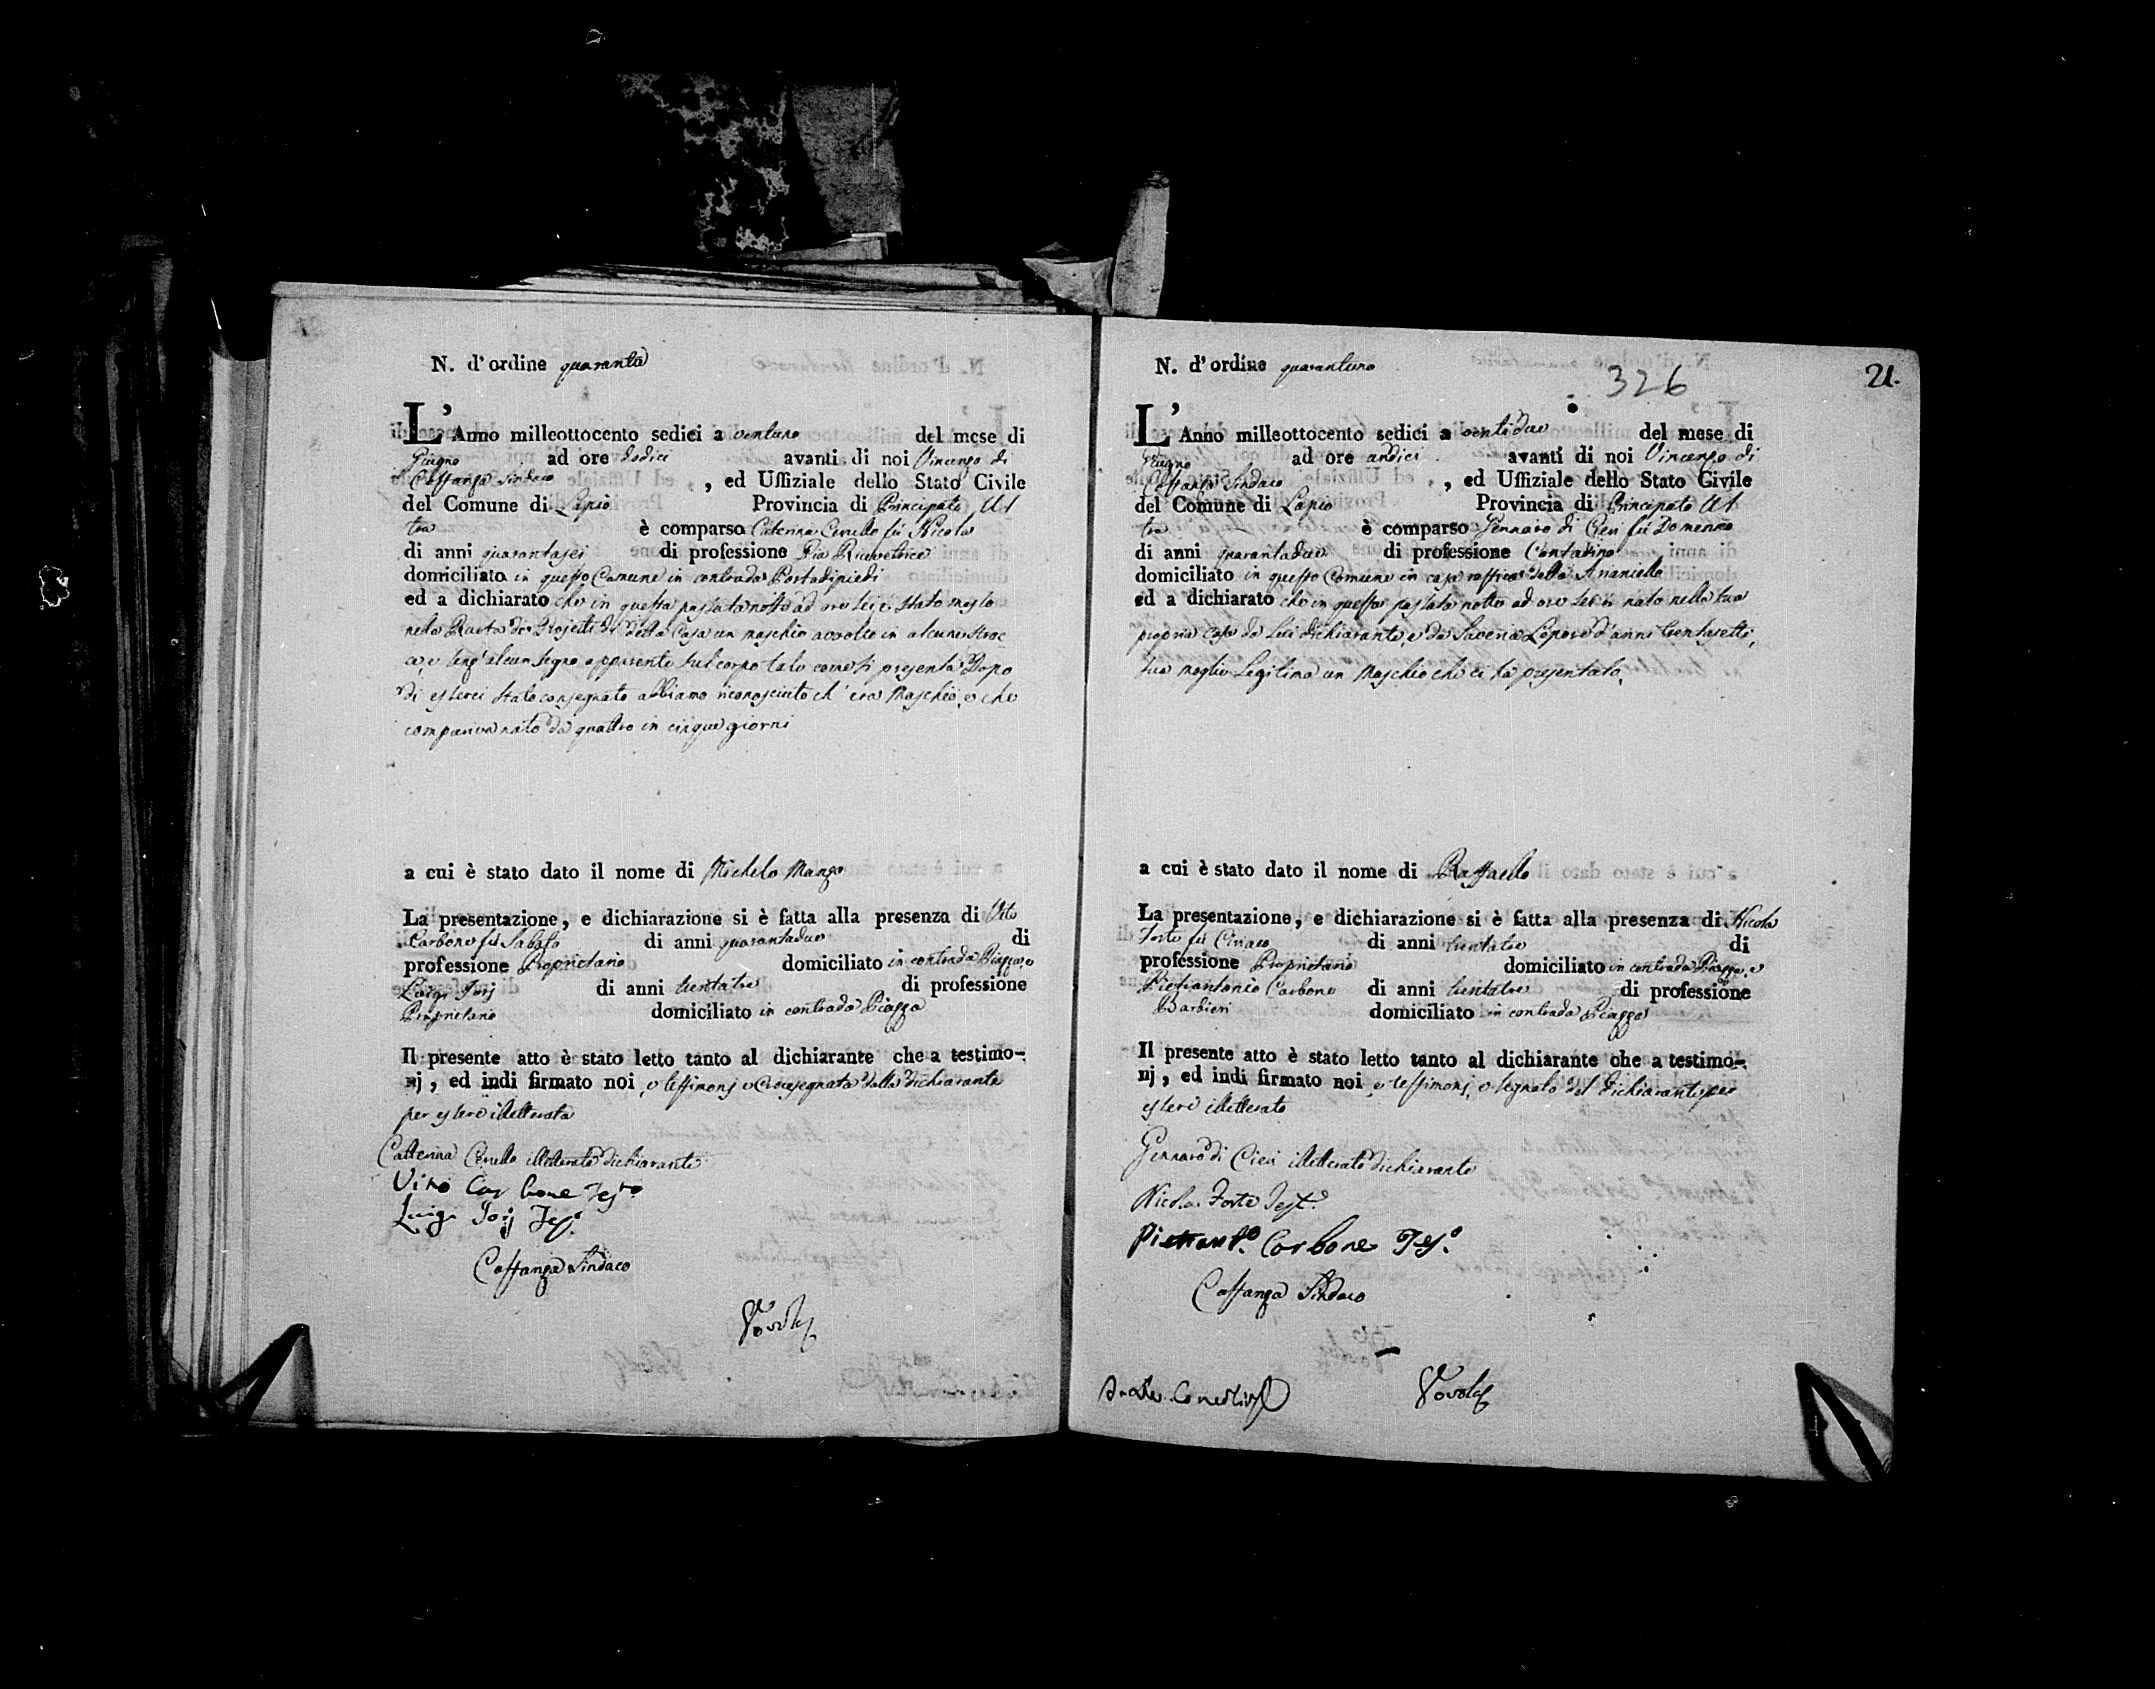 N. d'ordine quaranta
L'Anno milleottocento sedici a ventuno del mese di
Giugno ad ore dodici avanti di noi Vincenzo di
Costanza Sindaco , ed Uffiziale dello Stato Civile
del Comune di Lapio Provincia di Principato Ul
tra è comparso Caterina Cenullo fù Nicola
di anni quarantasei di professione Pia Ricevetrice
domiciliato in questo Comune in contrada Portadipiedi
ed a dichiarato che in questa passata notte ad ore sei è stato messo
nella Ruota de Projetti di detta Casa un maschio avvolto in alcune strac
ce, e senz' alcun segno apparente sul corpo tale come si presenta Dopo
di esserci stato consegnato abbiamo riconosciuto ch' era Maschio, e che
compariva nato da quattro in cinque giorni
a cui è stato dato il nome di Michele Mango
La presentazione, e dichiarazione si è fatta alla presenza di Vito
Carbone fù Sabato di anni quarantadue di
professione Proprietario domiciliato in contrada Piazza, e
Luigi Forj di anni trentatre di professione
Proprietario domiciliato in contrada Piazza
Il presente atto è stato letto tanto al dichiarante che a testimo-
nj, ed indi firmato noi, e testimonj e Crocesegnato dalla dichiarante
per essere illetterata
Catterina Cenullo illetterata dichiarante
Vito Carbone Testo
Luigi Forj Tes.
Costanza Sindaco
N. d'ordine quarantuno
326
21.
L'Anno milleottocento sedici a ventidue del mese di
Giugno ad ore undici avanti di noi Vincenzo di
Costanza Sindaco , ed Uffiziale dello Stato Civile
del Comune di Lapio Provincia di Principato Ul
tra è comparso Gennaro di Cieri fù Domenico
di anni quarantadue di professione Contadino
domiciliato in questo Comune in casa rustica detta Arianiello
ed a dichiarato che in questa passata notte ad ore sei è nato nella sua
propria casa da Lui dichiarante, e da Saveria Lepore d'anni trentasette,
sua moglie Legitima un Maschio che ci ha presentato,
a cui è stato dato il nome di Raffaello
La presentazione, e dichiarazione si è fatta alla presenza di Nicola
Forte fù Ciriaco di anni trentatre di
professione Proprietario domiciliato in contrada Piazza, e
Pietrantonio Carbone di anni trentatre di professione
Barbieri domiciliato in contrada Piazza
Il presente atto è stato letto tanto al dichiarante che a testimo-
nj, ed indi firmato noi, e testimonj, e segnato del dichiarante per
essere illetterato
Gennaro di Cieri illetterato dichiarante
Nicola Forte Test.o
Pietrant.o Carbone Tes.o
Costanza Sindaco